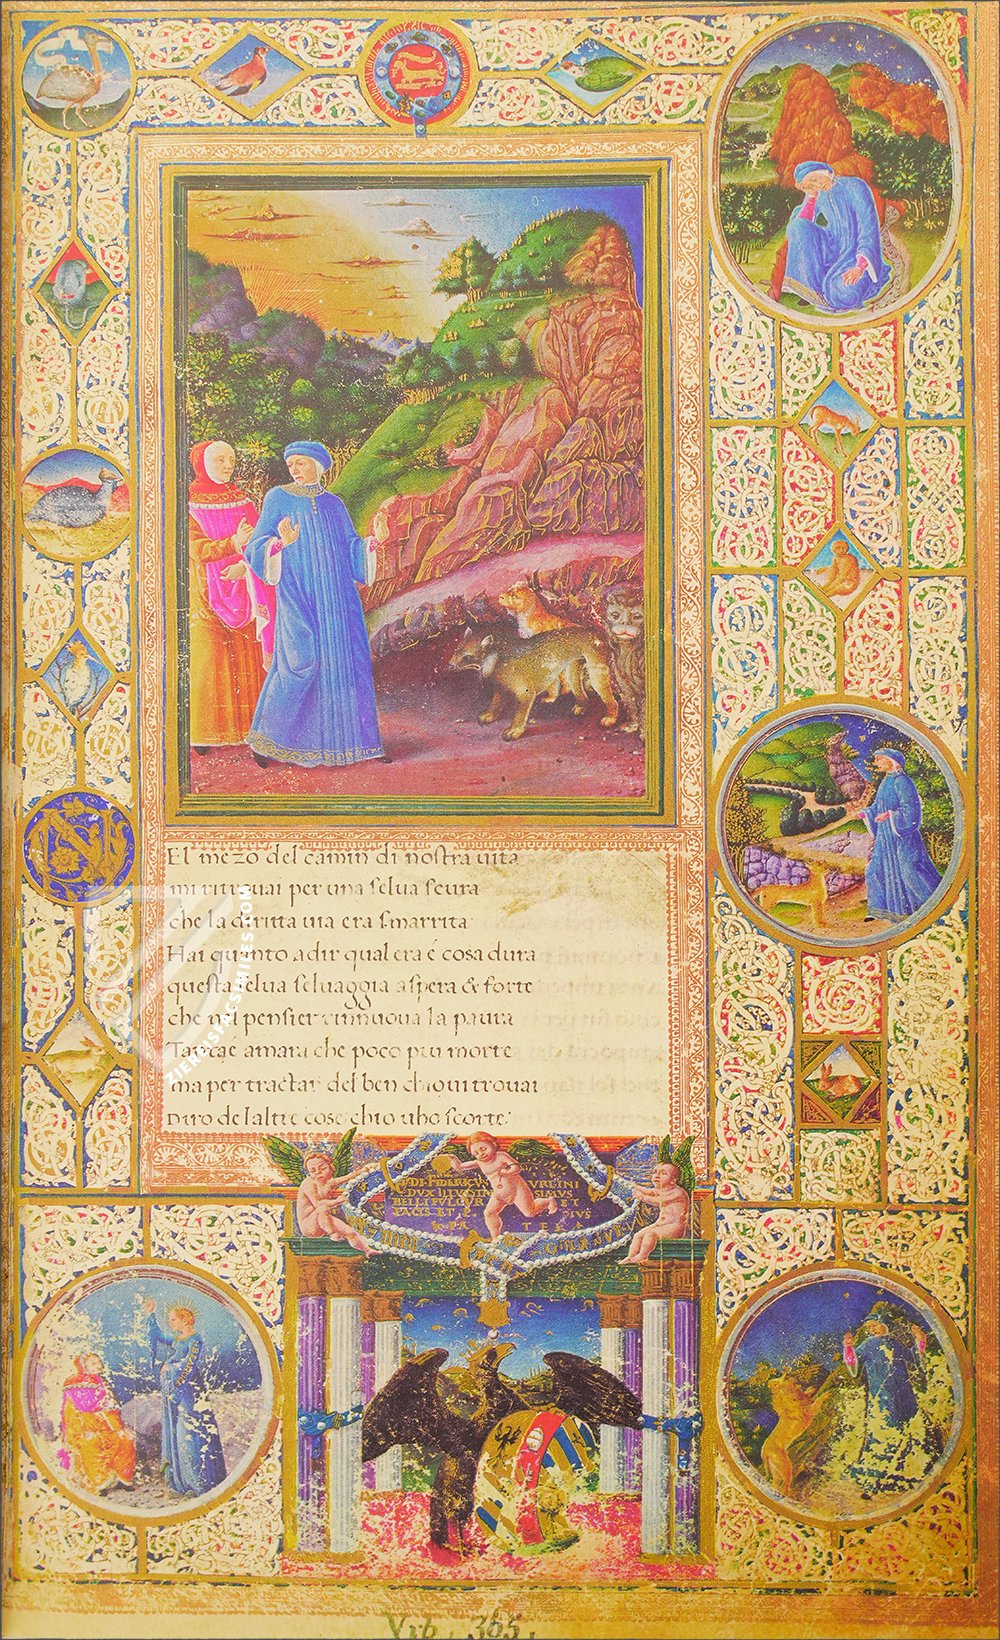 El mezo del camin di nostra uita
mi ritrouai per una selua scura
che la diritta uia era smarrita
Hai quanto a dir qual era é cosa dura
questa selua seluaggia aspera & forte
che nel pensier rinnuoua la paura
Tant é amara che poco piu morte
ma per tractar del ben chio ui trouai
diro de laltre cose chio uho scorte
DI·FIDERICVS VRBINI
DVX ILLVSTR ISSIMVS
BELLI FVLGVR ET
PACIS ET P SIVS
P TES
ZIEREIS FACSIMILES.COM
Vrb. 365.